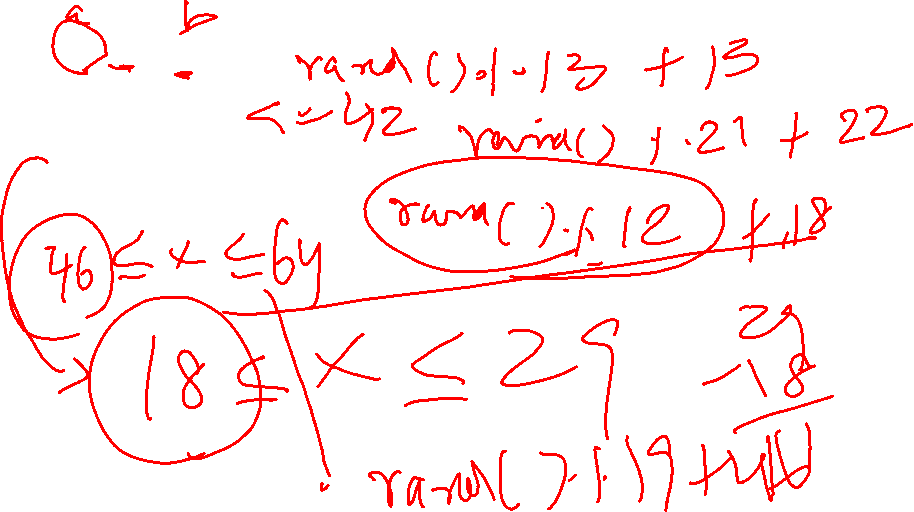 a b
rand() % 13 + 13
<= 42
rand() % 21 + 22
rand() % 12 + 18
46 ≤ x ≤ 64
18 ≤ x ≤ 29
29
-18
rand() % 19 + 46